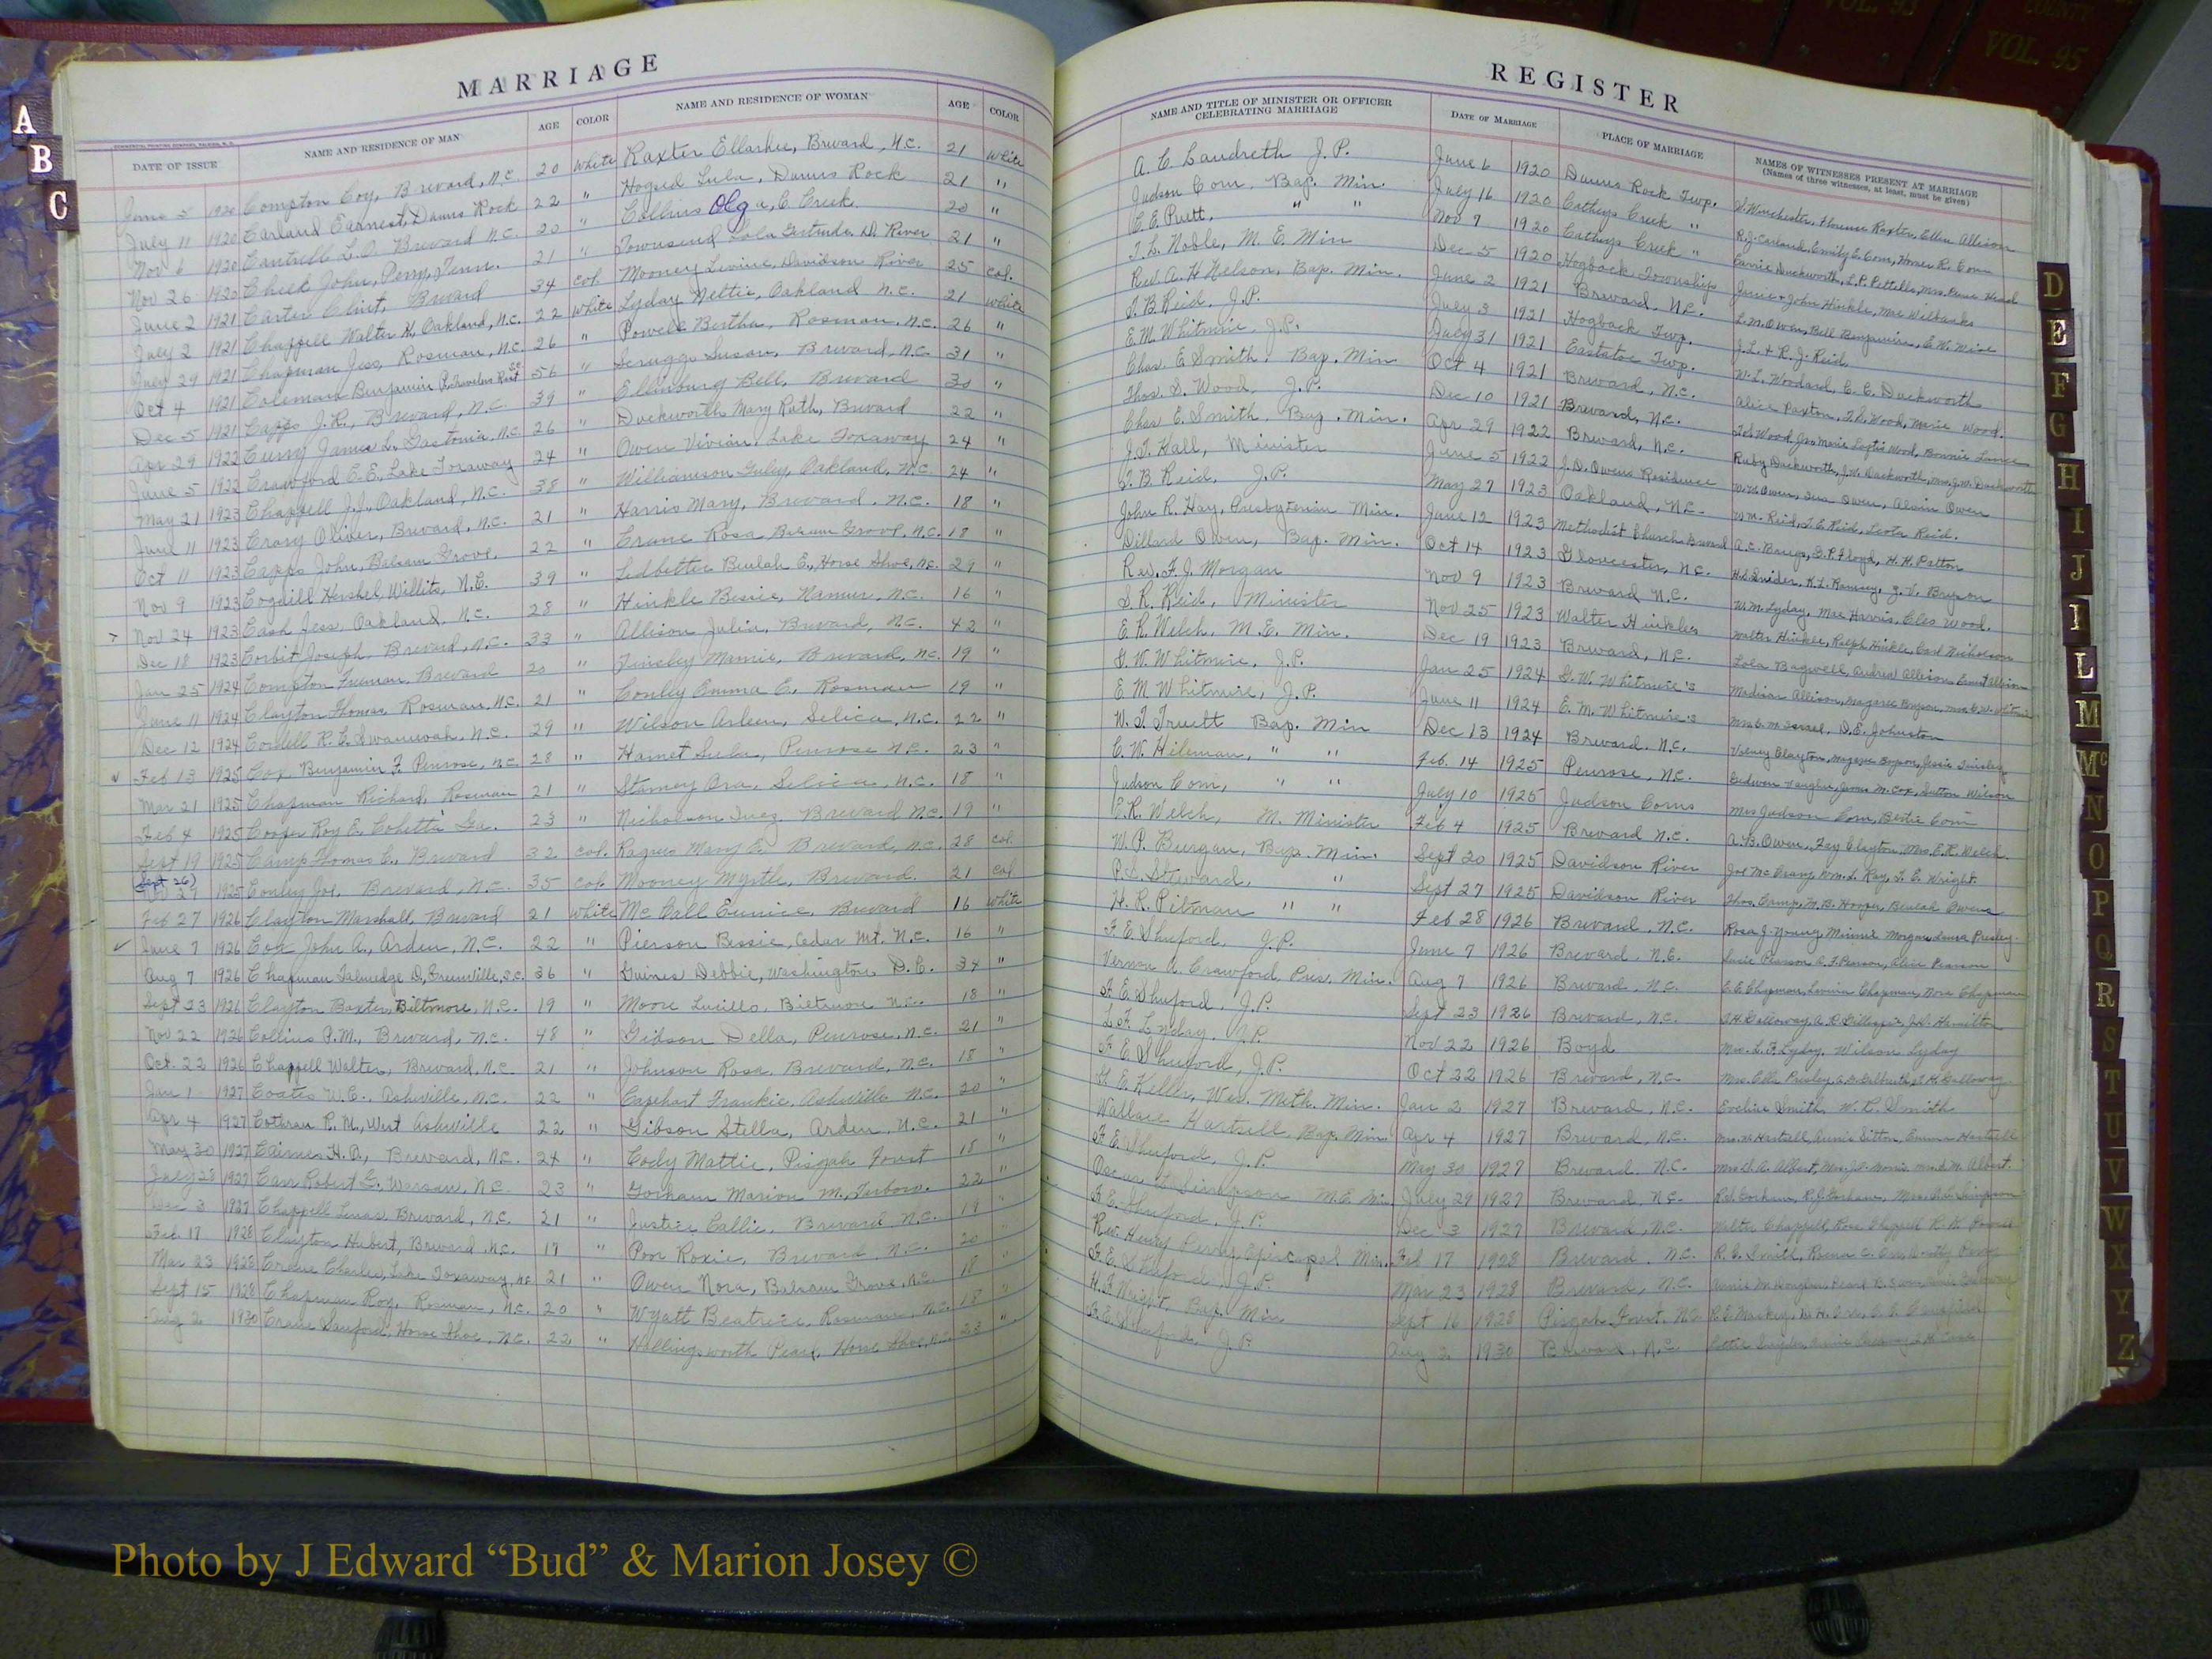 VOL. 93
COUNTY
VOL. 95
MARRIAGE REGISTER
A
B
C
DATE OF ISSUE NAME AND RESIDENCE OF MAN AGE COLOR NAME AND RESIDENCE OF WOMAN AGE COLOR
NAME AND TITLE OF MINISTER OR OFFICER CELEBRATING MARRIAGE DATE OF MARRIAGE PLACE OF MARRIAGE NAMES OF WITNESSES PRESENT AT MARRIAGE
(Names of three witnesses, at least, must be given)
June 5 1920 Compton Coy, Brevard, N.C. 20 White Raxter Ellarhee, Brevard, N.C. 21 White
July 11 1920 Earnest, Dunns Rock 22 " Hogsed Lula, Dunns Rock 21 "
Nov 6 1920 Cantrell L.O. Brevard N.C. 20 " Collins Olga, C. Creek 20 "
Nov 26 1920 Cheek John, Perry, Tenn. 21 " Townsend Lola Gertrude, D. River 21 "
June 2 1921 Carter Clint, Brevard 34 Col. Mooney Davidson River 25 Col.
July 2 1921 Chappell Walter K, Oakland, N.C. 22 White Lyday Nettie, Oakland N.C. 21 White
July 29 1921 Chapman Jess, Rosman, N.C. 26 " Powell Bertha, Rosman, N.C. 26 "
Oct 4 1921 Coleman Benjamin P. 56 " Scruggs Susan, Brevard, N.C. 31 "
Dec 5 1921 Capps J.R., Brevard, N.C. 39 " Bell, Brevard 30 "
Apr 29 1922 Curry James L. Gastonia, N.C. 26 " Duckworth Mary Ruth, Brevard 22 "
June 5 1922 Crawford E.E. Lake Toxaway 24 " Owen Vivian, Lake Toxaway 24 "
May 21 1923 Chappell J.J. Oakland, N.C. 38 " Williamson Oakland, N.C. 24 "
June 11 1923 Crary Oliver, Brevard, N.C. 21 " Harris Mary, Brevard, N.C. 18 "
Oct 11 1923 Capps John, Balsam Grove, 22 " Crane Rosa Balsam Grove, N.C. 18 "
Nov 9 1923 Cogdill Hershel Willits, N.C. 39 " Ledbetter Beulah E., Horse Shoe, N.C. 29 "
Nov 24 1923 Cash Jess, Oakland, N.C. 28 " Hinkle Bessie, N.C. 16 "
Dec 18 1923 Corbit Joseph, Brevard, N.C. 33 " Allison Julia, Brevard, N.C. 42 "
Jan 25 1924 Compton Freeman, Brevard 20 " Tinsley Mamie, Brevard, N.C. 19 "
June 11 1924 Clayton Thomas Rosman, N.C. 21 " Conley Emma C. Rosman 19 "
Dec 12 1924 Cordell R.L. Swannoah, N.C. 29 " Wilson Arleen, Selica, N.C. 22 "
Feb 13 1925 Cox Benjamin F. Penrose, N.C. 28 " Lula, Penrose N.C. 23 "
Mar 21 1925 Chapman Richard, Rosman 21 " Stamey Ora, Selica, N.C. 18 "
Feb 4 1925 Cooper Roy E. Ga. 23 " Nicholson Inez Brevard N.C. 19 "
Sept 19 1925 Camp Thomas C., Brevard 32 Col. Mary E. Brevard, N.C. 28 Col.
(Sept 26) 1925 Conley Joe, Brevard, N.C. 35 Col. Mooney Myrtle, Brevard. 21 Col
Feb 27 1926 Clayton Marshall, Brevard 21 White McCall Eunice, Brevard 16 White
June 7 1926 Cox John A., Arden, N.C. 22 " Pierson Bessie, Cedar Mt. N.C. 16 "
Aug 7 1926 Chapman Talmedge D, Greenville, S.C. 36 " Guines Debbie, Washington D.C. 34 "
Sept 23 1926 Clayton Baxter, Biltmore, N.C. 19 " Moore Lucille, Biltmore N.C. 18 "
Nov 22 1926 Collins P.M., Brevard, N.C. 48 " Gibson Della, Penrose, N.C. 21 "
Oct. 22 1926 Chappell Walter, Brevard, N.C. 21 " Johnson Rosa, Brevard, N.C. 18 "
Jan 1 1927 Coates W.E. Asheville, N.C. 22 " Capehart Frankie, Asheville N.C. 20 "
Apr 4 1927 Cothran R.M., West Asheville 22 " Gibson Stella, Arden, N.C. 21 "
May 30 1927 H.A., Brevard, N.C. 24 " Cody Mattie, Pisgah Forest 18 "
July 28 1927 Carr Robert L., Warsaw, N.C. 23 " Gorham Marion M., Tarboro. 22 "
Dec 3 1927 Chappell Brevard, N.C. 21 " Justice Callie, Brevard N.C. 19 "
Feb. 17 1928 Clayton Hubert, Brevard, N.C. 19 " Poor Roxie, Brevard N.C. 20 "
Mar 23 1928 Crane Charles, Lake Toxaway, N.C. 21 " Owen Nora, Balsam Grove, N.C. 18 "
Sept 15 1928 Chapman Roy, Rosman, N.C. 20 " Wyatt Beatrice, Rosman, N.C. 18 "
Aug 2 1930 Crane Sanford, Horse Shoe, N.C. 22 " Hollingsworth Pearl, Horse Shoe, N.C. 23 "
A. C. Landreth J.P. June 6 1920 Dunns Rock Twp. Winchester, Florence Raxter, Ellen Allison
Judson Corn, Bap. Min. July 16 1920 Catheys Creek " R.J. Emily E. Corn, Homer R. Corn
C.E. Pruett, " " Nov 7 1920 Catheys Creek " Carrie Duckworth
T. L. Noble, M. E. Min Dec 5 1920 Hogback Township John Hinkle, Mae Wilbanks
Rev. A. H. Nelson, Bap. Min. June 2 1921 Brevard, N.C. L.M. Owen, Bell Benjamin, E.W. Wise
T. B. Reid, J.P. July 3 1921 Hogback Twp. J.L. & R.J. Reid
E. M. Whitmire, J.P. July 31 1921 Eastatoe Twp. W.L. Woodard, C.C. Duckworth
Chas. E. Smith, Bap. Min Oct 4 1921 Brevard, N.C. Alice Paxton, Wood, Marie Wood.
Thos. S. Wood, J.P. Dec 10 1921 Brevard, N.C.
Chas. E. Smith, Bap. Min. Apr 29 1922 Brevard, N.C. Ruby Duckworth, J.W. Duckworth, Mrs. J.W. Duckworth
J. T. Hall, Minister June 5 1922 J. D. Owens Residence Owen, Alvin Owen
T. B. Reid, J.P. May 27 1923 Oakland, N.C. Wm. Reid, T.C. Reid, Leota Reid.
John R. Hay, Presbyterian Min. June 12 1923 Methodist Church Brevard Floyd, H.H. Patton
Dillard Owen, Bap. Min. Oct 14 1923 Gloucester, N.C. H.L. Snider, K.L. Ramsey, Bryson
Rev. F. J. Morgan Nov 9 1923 Brevard N.C. W.M. Lyday, Mae Harris, Cleo Wood.
S. R. Reid, Minister Nov 25 1923 Walter Hinkles Walter Hinkle, Ralph Hinkle, Carl Nicholson
E. R. Welch, M. E. Min. Dec 19 1923 Brevard, N.C. Lola Bagwell, Andrea Allison
G. W. Whitmire, J.P. Jan 25 1924 G. W. Whitmire's Madison Allison, Bryson
E. M. Whitmire, J.P. June 11 1924 E. M. Whitmire's D.E. Johnston
W. T. Truett Bap. Min Dec 13 1924 Brevard, N.C. Clayton
C. W. Hileman, " " Feb. 14 1925 Penrose, N.C. Sutton Wilson
Judson Corn, " " July 10 1925 Judson Corns Mrs Judson Corn, Bertie Corn
E. R. Welch, M. Minister Feb 4 1925 Brevard N.C. A.B. Owen, Fay Clayton, Mrs. E.R. Welch
W. P. Burgan, Bap. Min. Sept 20 1925 Davidson River Wm. L. Ray, T. E. Wright.
P. S. Steward, " Sept 27 1925 Davidson River Thos. Camp, M.B. Hooper, Beulah Owens
H. R. Pitman " " Feb 28 1926 Brevard, N.C. Rosa J. Young, Minnie Morgan, Presley
F. E. Shuford, J.P. June 7 1926 Brevard, N.C. Pearson
Vernon A. Crawford, Pres. Min. Aug 7 1926 Brevard, N.C. Chapman, Louisa Chapman, Nora Chapman
F. E. Shuford, J.P. Sept 23 1926 Brevard, N.C. Galloway, Hamilton
L. F. Lyday, J.P. Nov 22 1926 Boyd Mrs. L.F. Lyday, Wilson Lyday
F. E. Shuford, J.P. Oct 22 1926 Brevard, N.C. Galloway
Keller, Wes. Meth. Min. Jan 2 1927 Brevard, N.C. Smith, W. C. Smith
Wallace Hartsell, Bap. Min. Apr 4 1927 Brevard, N.C. Annie Sitton, Emma Hartsell
F. E. Shuford, J.P. May 30 1927 Brevard, N.C. Albert.
Simpson M.E. Min. July 29 1927 Brevard, N.C. Gorham, Gorham, Simpson
F. E. Shuford, J.P. Dec 3 1927 Brevard, N.C. Walter Chappell, Chappell
Rev. Henry Perry, Episcopal Min. Feb 17 1928 Brevard, N.C. Smith
F. E. Shuford, J.P. Mar 23 1928 Brevard, N.C.
Bap. Min Sept 16 1928 Pisgah Forest, N.C.
F. E. Shuford, J.P. Aug 2 1930 Brevard, N.C.
D
E
F
G
H
I
J
I
L
M
Mc
N
O
P
Q
R
S
T
U
V
W
X
Y
Z
Photo by J Edward “Bud” & Marion Josey ©